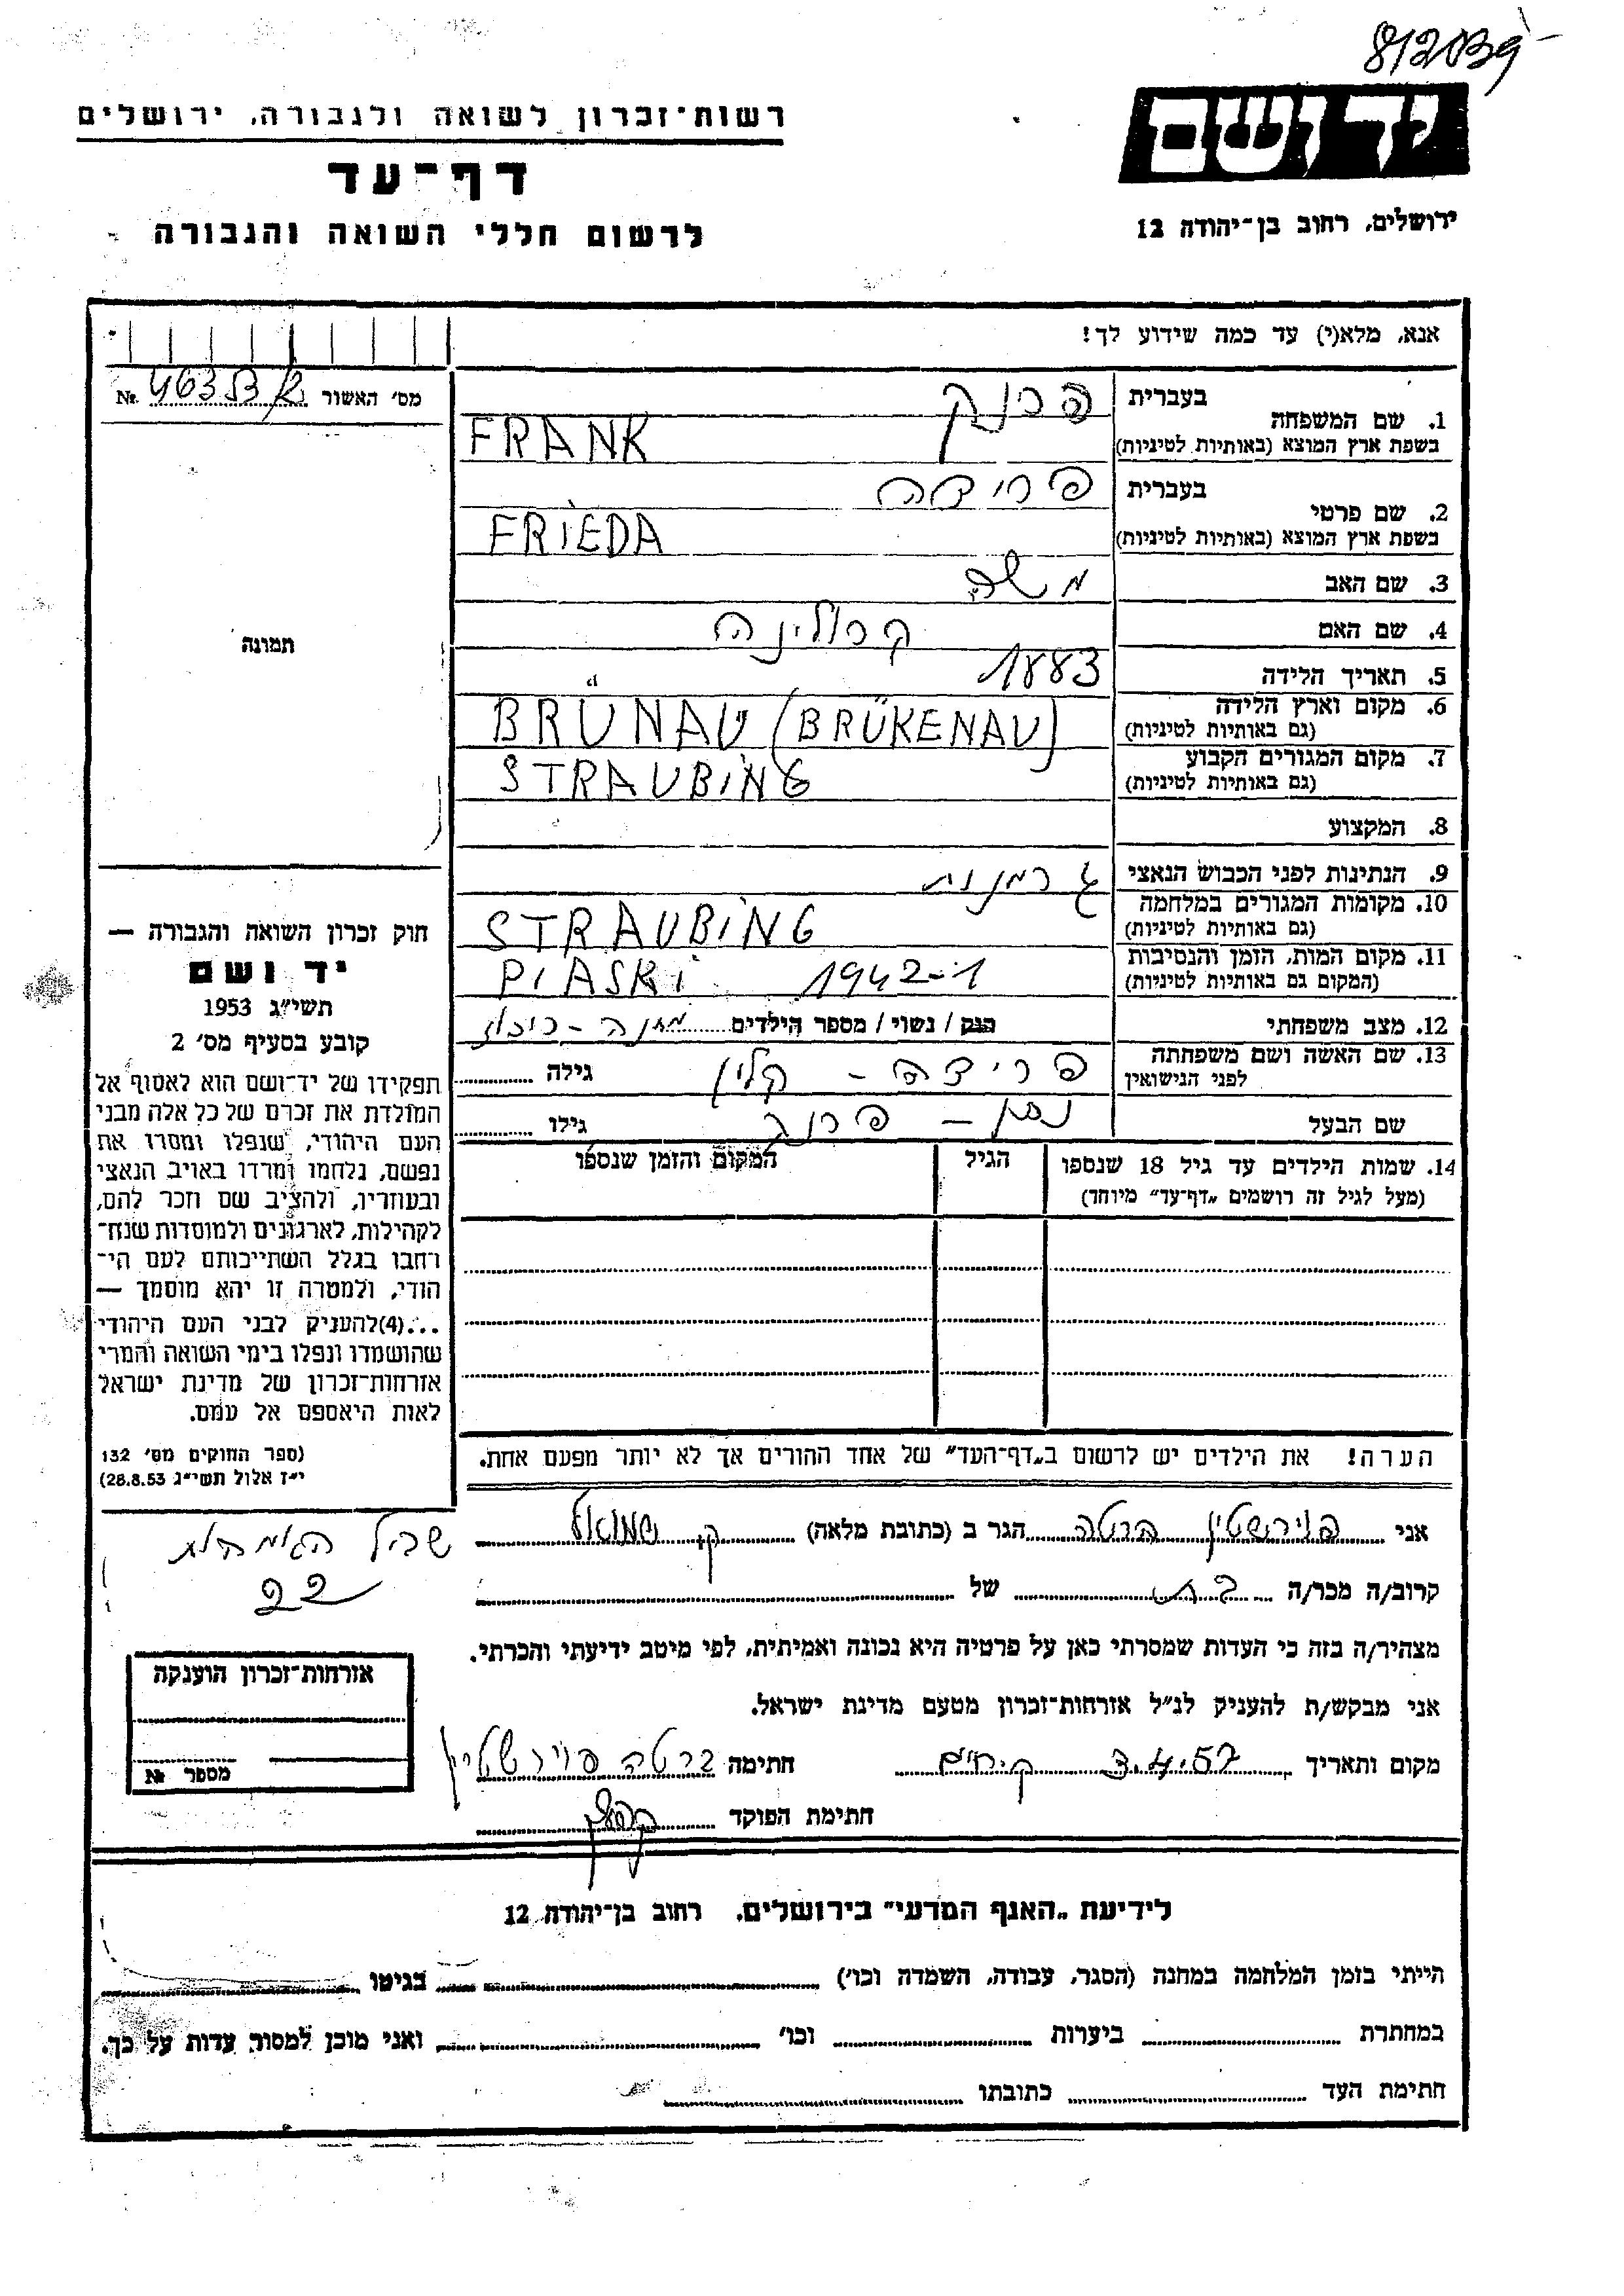 812039
רשות־זכרון לשואה ולגבורה, ירושלים
יד ושם
דף־עד
לרשום חללי השואה והגבורה
ירושלים, רחוב בן־יהודה 12
אנא, מלא(י) עד כמה שידוע לך!
מס׳ האשור Nr.
1. שם המשפחה
בעברית פרנק
בשפת ארץ המוצא (באותיות לטיניות) FRANK
2. שם פרטי
בעברית פרידה
בשפת ארץ המוצא (באותיות לטיניות) FRIEDA
3. שם האב משה
4. שם האם קרולינה
5. תאריך הלידה 1883
6. מקום וארץ הלידה (גם באותיות לטיניות) BRÜNAU (BRÜKENAU)
7. מקום המגורים הקבוע (גם באותיות לטיניות) STRAUBING
8. המקצוע
9. הנתינות לפני הכבוש הנאצי גרמנית
10. מקומות המגורים במלחמה (גם באותיות לטיניות) STRAUBING
11. מקום המות, הזמן והנסיבות (המקום גם באותיות לטיניות) PIASKI 1942-1
מחנה - ריכוז
12. מצב משפחתי רווק / נשוי / מספר הילדים
13. שם האשה ושם משפחתה לפני הנישואין פרידה - קליין גילה
שם הבעל נתן - פרנק גילו
14. שמות הילדים עד גיל 18 שנספו (מעל לגיל זה רושמים „דף־עד״ מיוחד)
הגיל
המקום והזמן שנספו
תמונה
חוק זכרון השואה והגבורה —
יד ושם
תשי״ג 1953
קובע בסעיף מס׳ 2
תפקידו של יד־ושם הוא לאסוף אל
המולדת את זכרם של כל אלה מבני
העם היהודי, שנפלו ומסרו את
נפשם, נלחמו ומרדו באויב הנאצי
ובעוזריו, ולהציב שם וזכר להם,
לקהילות, לארגונים ולמוסדות שנח־
רחבו בגלל השתייכותם לעם הי־
הודי, ולמטרה זו יהא מוסמך —
...(4)להעניק לבני העם היהודי
שהושמדו ונפלו בימי השואה והמרי
אזרחות־זכרון של מדינת ישראל
לאות היאספם אל עמם.
(ספר החוקים מס׳ 132
י״ז אלול תשי״ג 28.8.53)
הערה! את הילדים יש לרשום ב„דף־העד״ של אחד ההורים אך לא יותר מפעם אחת.
אני פוירשטין ברטה הגר ב (כתובת מלאה) ק. שמואל
22
קרוב/ה מכר/ה בת של
מצהיר/ה בזה כי העדות שמסרתי כאן על פרטיה היא נכונה ואמיתית, לפי מיטב ידיעתי והכרתי.
אני מבקש/ת להעניק לנ״ל אזרחות־זכרון מטעם מדינת ישראל.
מקום ותאריך 3.4.57 חתימה ברטה פוירשטין
חתימת הפוקד
אזרחות־זכרון הוענקה
מספר №
לידיעת „האגף המדעי״ בירושלים, רחוב בן־יהודה 12
הייתי בזמן המלחמה במחנה (הסגר, עבודה, השמדה וכו׳) בגיטו
במחתרת ביערות וכו׳ ואני מוכן למסור עדות על כך.
חתימת העד כתובתו